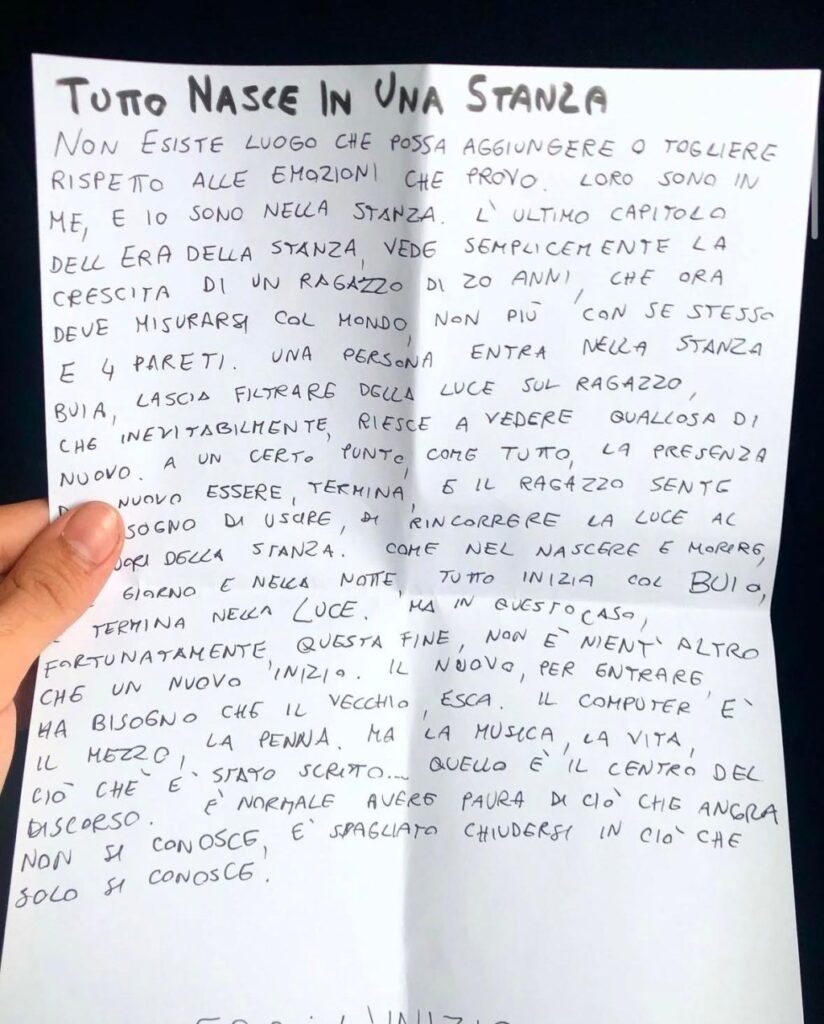 TUTTO NASCE IN UNA STANZA
NON ESISTE LUOGO CHE POSSA AGGIUNGERE O TOGLIERE
RISPETTO ALLE EMOZIONI CHE PROVO. LORO SONO IN
ME, E IO SONO NELLA STANZA. L'ULTIMO CAPITOLO
DELL ERA DELLA STANZA, VEDE SEMPLICEMENTE LA
CRESCITA DI UN RAGAZZO DI 20 ANNI, CHE ORA
DEVE MISURARSI COL MONDO, NON PIÙ CON SE STESSO
E 4 PARETI. UNA PERSONA ENTRA NELLA STANZA
BUIA, LASCIA FILTRARE DELLA LUCE SUL RAGAZZO,
CHE INEVITABILMENTE, RIESCE A VEDERE QUALLOSA DI
NUOVO. A UN CERTO PUNTO, COME TUTTO, LA PRESENZA
NUOVO ESSERE, TERMINA, E IL RAGAZZO SENTE
SOGNO DI USCIRE, DI RINCORRERE LA LUCE AL
UORI DELLA STANZA. COME NEL NASCERE E MORIRE,
GIORNO E NELLA NOTTE, TUTTO INIZIA COL BUIO,
TERMINA NELLA LUCE. MA IN QUESTO CASO,
FORTUNATAMENTE, QUESTA FINE, NON È NIENT'ALTRO
CHE UN NUOVO INIZIO. IL NUOVO, PER ENTRARE
HA BISOGNO CHE IL VECCHIO, ESCA. IL COMPUTER È
IL MEZZO, LA PENNA. MA LA MUSICA, LA VITA,
CIÒ CHE È STATO SCRITTO... QUELLO È IL CENTRO DEL
DISCORSO. È NORMALE AVERE PAURA DI CIÒ CHE ANCORA
NON SI CONOSCE, È SBAGLIATO CHIUDERSI IN CIÒ CHE
SOLO SI CONOSCE.